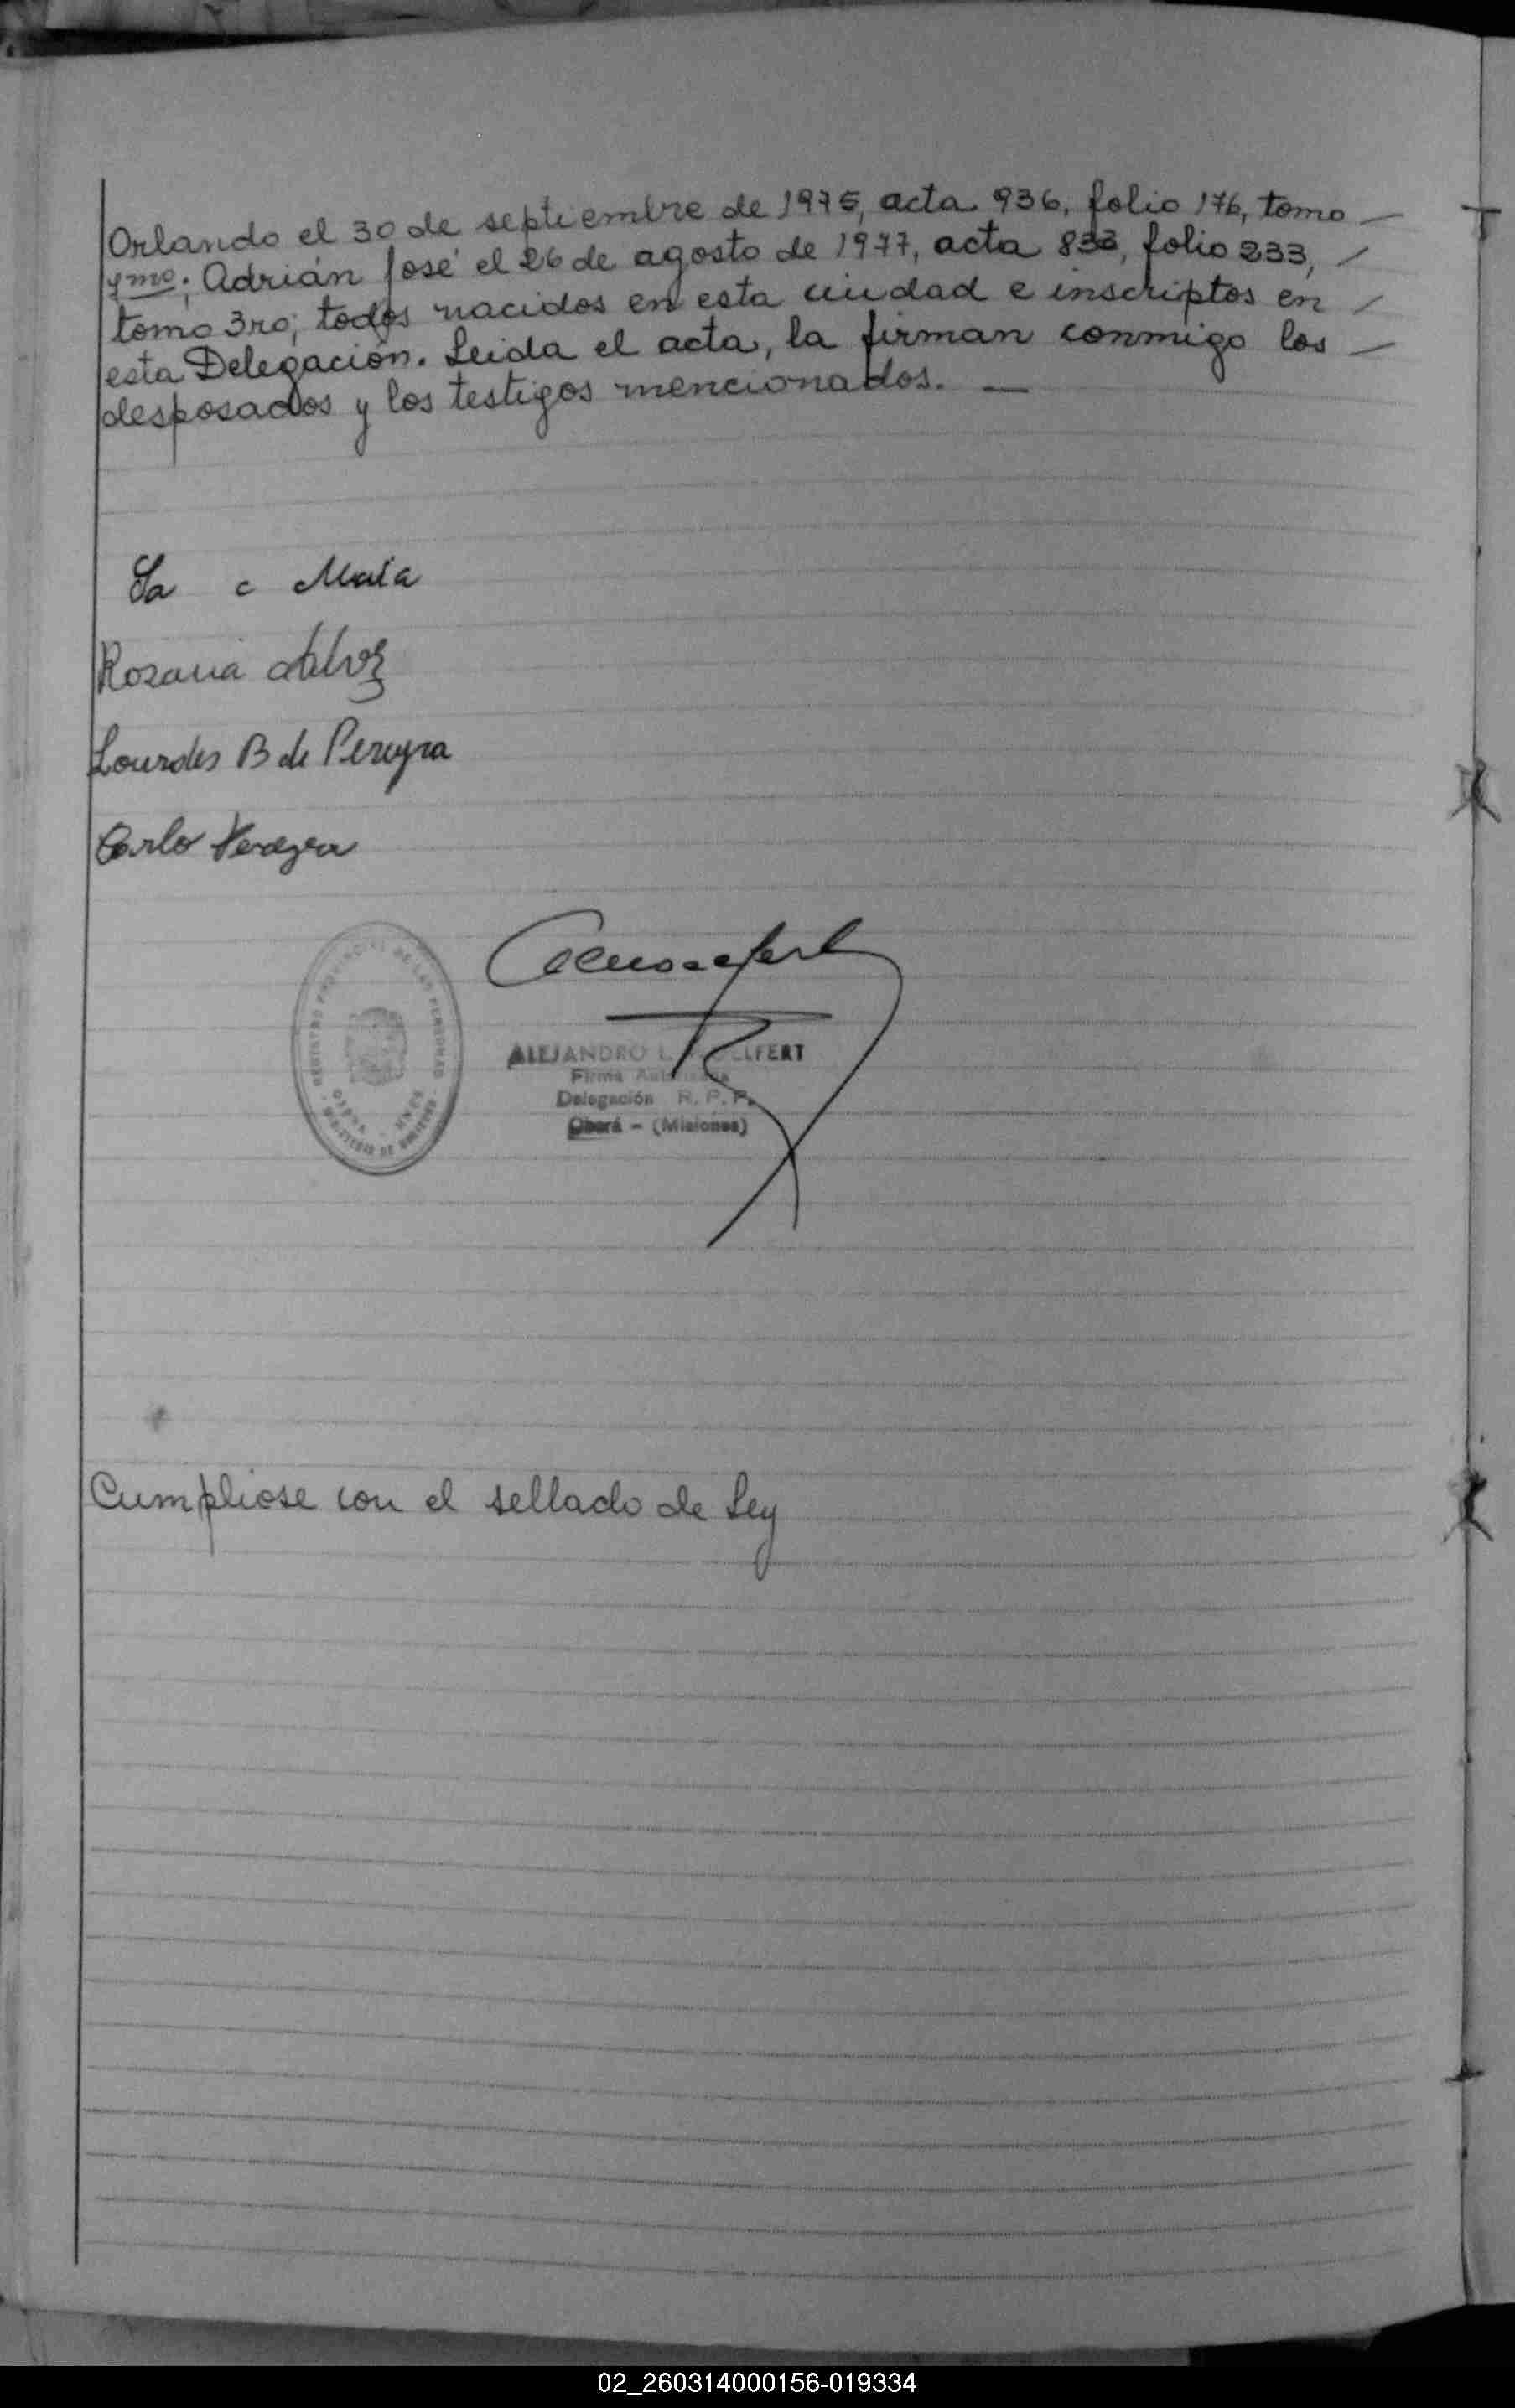 Orlando el 30 de septiembre de 1975, acta 936, folio 176, tomo —
Adrián José el 26 de agosto de 1977, acta 833, folio 233, /
tomo 3ro; todos nacidos en esta ciudad e inscriptos en /
esta Delegación. Leida el acta, la firman conmigo los —
desposados y los testigos mencionados. —
Rozana
Lourdes B de Pereyra
Carlo Pereyra
REGISTRO PROVINCIAL DE LAS PERSONAS
OBERA - MNES
MINISTERIO DE GOBIERNO
ALEJANDRO L.
Firma Autorizada
Delegación R. P. P.
Oberá - (Misiones)
Cumpliose con el sellado de Ley
02_260314000156-019334